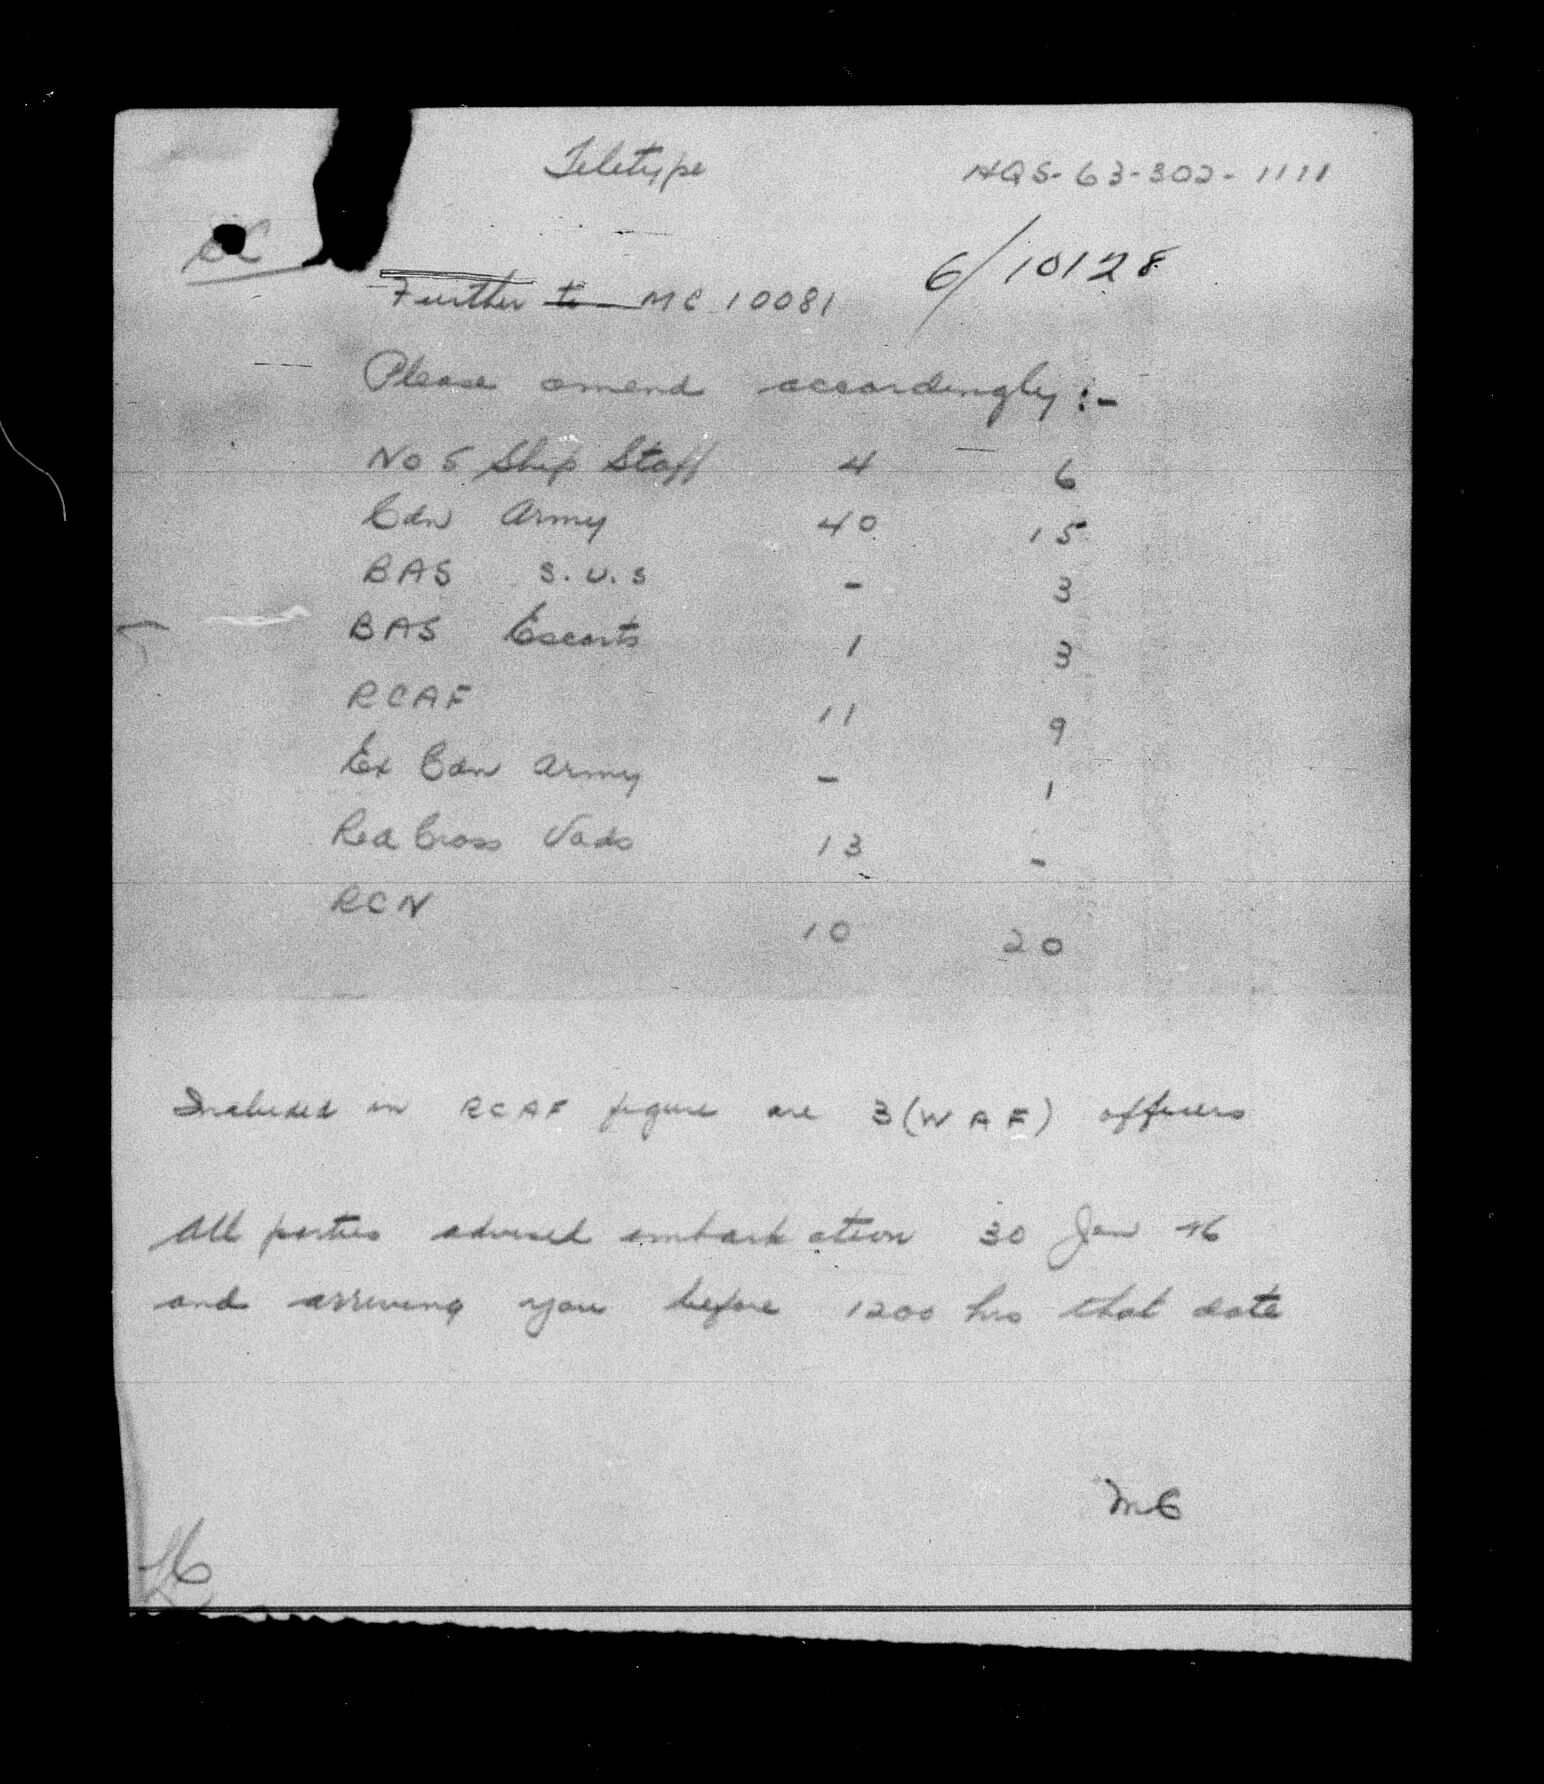 Teletype HQS-63-302-1111
6/10128
Further to MC 10081
Please amend accordingly :-
No 5 Ship Staff 4 6
Cdn Army 40 15
BAS S.U.S - 3
BAS Escorts 1 3
RCAF 11 9
Ex Cdn Army - 1
Red Cross Vads 13 -
RCN 10 20
Included in RCAF figure are 3 (WAF) officers
All parties advised embarkation 30 Jan 46
and arriving you before 1200 hrs that date
MC